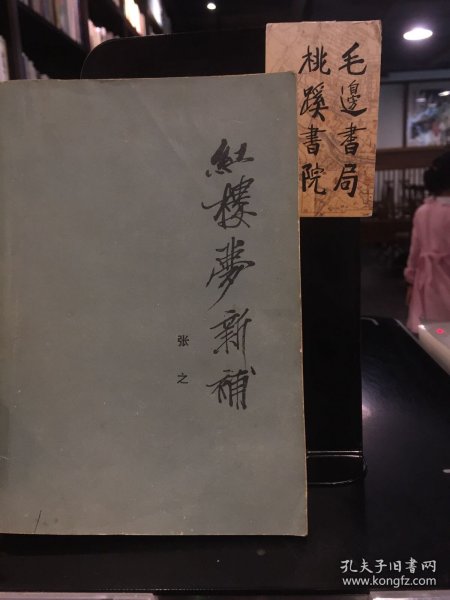 毛邊書局
桃蹊書院
紅樓夢新補
张之
孔夫子旧书网
www.kongfz.com